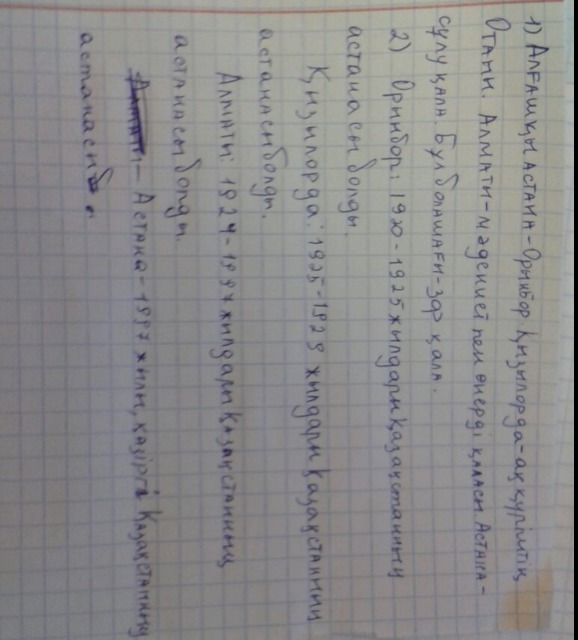 1) Алғашқы астана-Орынбор. Қызылорда-ақ күріштің
Отаны. Алматы-мәдениет пен өнерді қаласы. Астана-
сұлу қала. Бұл болашағы-зор қала.
2) Орынбор: 1920-1925 жылдары Қазақстанның
астанасы болды.
Қызылорда: 1925-1929 жылдары Қазақстанның
астанасы болды.
Алматы: 1929-1997 жылдары Қазақстанның
астанасы болды.
Астана-1997 жылы, қазіргі Қазақстанның
астанасы.